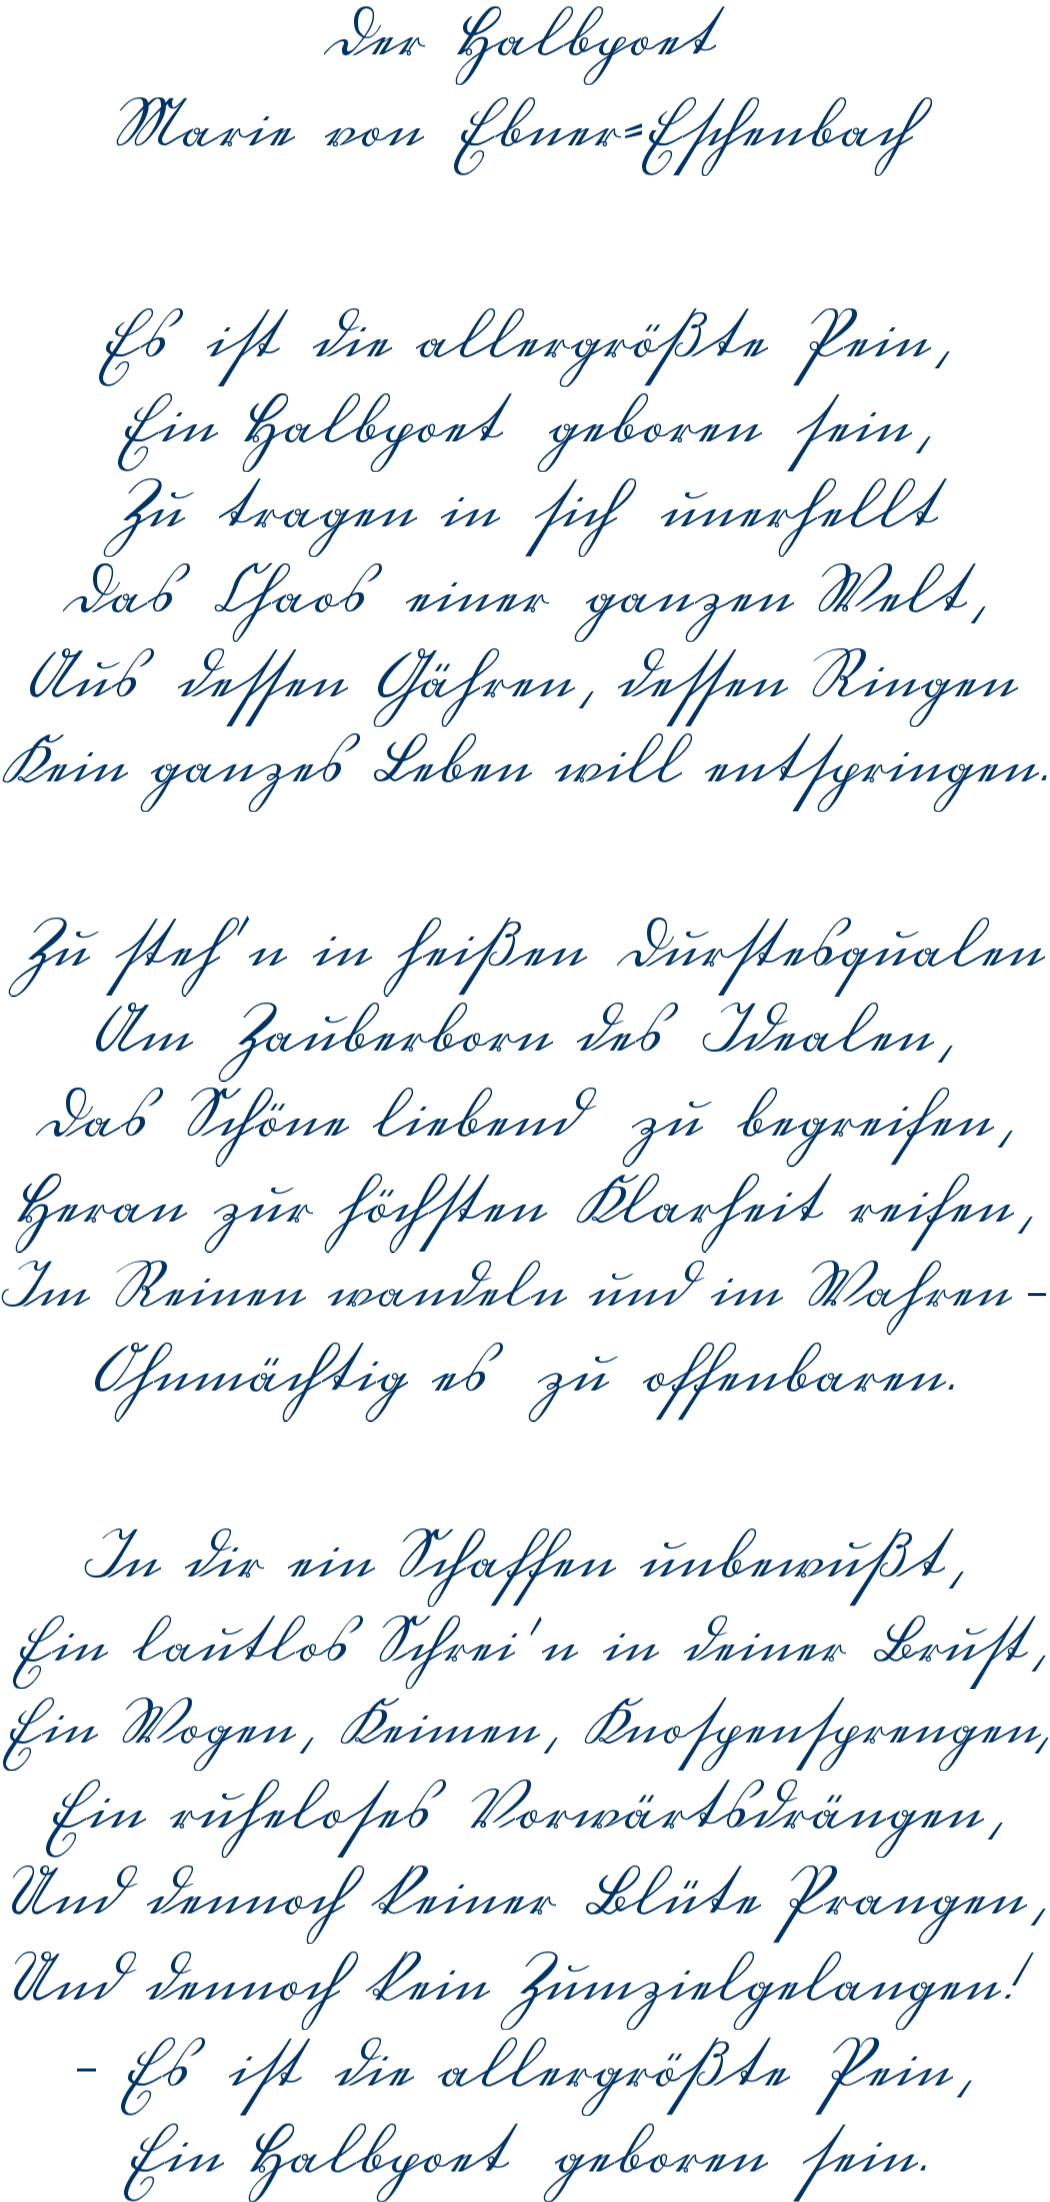 Der Halbpoet
Marie von Ebner=Eschenbach
Es ist die allergrößte Pein,
Ein Halbpoet geboren sein,
Zu tragen in sich unerhellt
Das Chaos einer ganzen Welt,
Aus dessen Gähren, dessen Ringen
Kein ganzes Leben will entspringen.
Zu steh'n in heißen Durstesqualen
Am Zauberborn des Idealen,
Das Schöne liebend zu begreifen,
Heran zur höchsten Klarheit reifen,
Im Reinen wandeln und im Wahren –
Ohnmächtig es zu offenbaren.
In dir ein Schaffen unbewußt,
Ein lautlos Schrei'n in deiner Brust,
Ein Wogen, Keimen, Knospensprengen,
Ein ruheloses Vorwärtsdrängen,
Und dennoch keiner Blüte Prangen,
Und dennoch kein Zumzielgelangen!
– Es ist die allergrößte Pein,
Ein Halbpoet geboren sein.